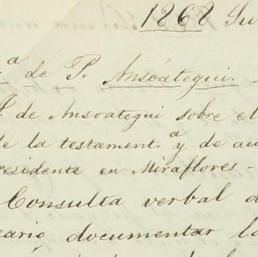 1868 Ju
ª de P. Ansoátegui.
de Ansoategui sobre el
de la testament.ª y de au
residente en Miraflores -
Consulta verbal d
documentar la